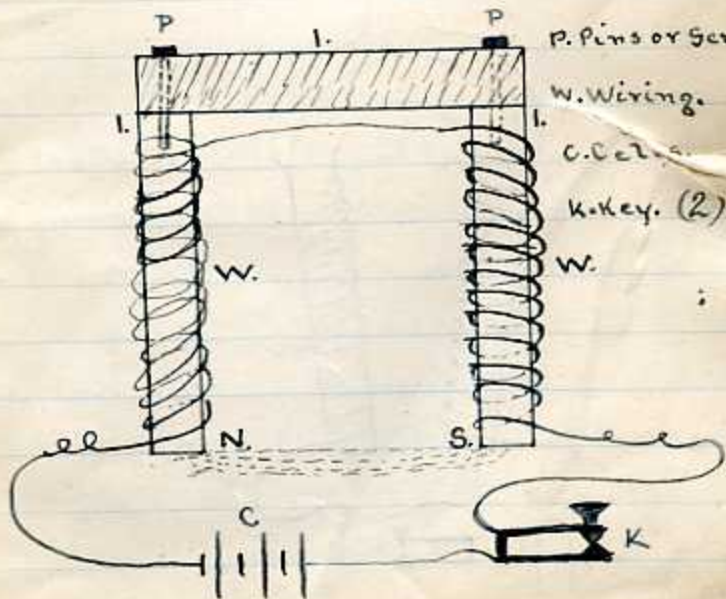 P
1.
P
P. Pins or Scr
1.
1.
W. Wiring.
C. Cells.
K. Key. (2)
W.
W.
N.
S.
C
K